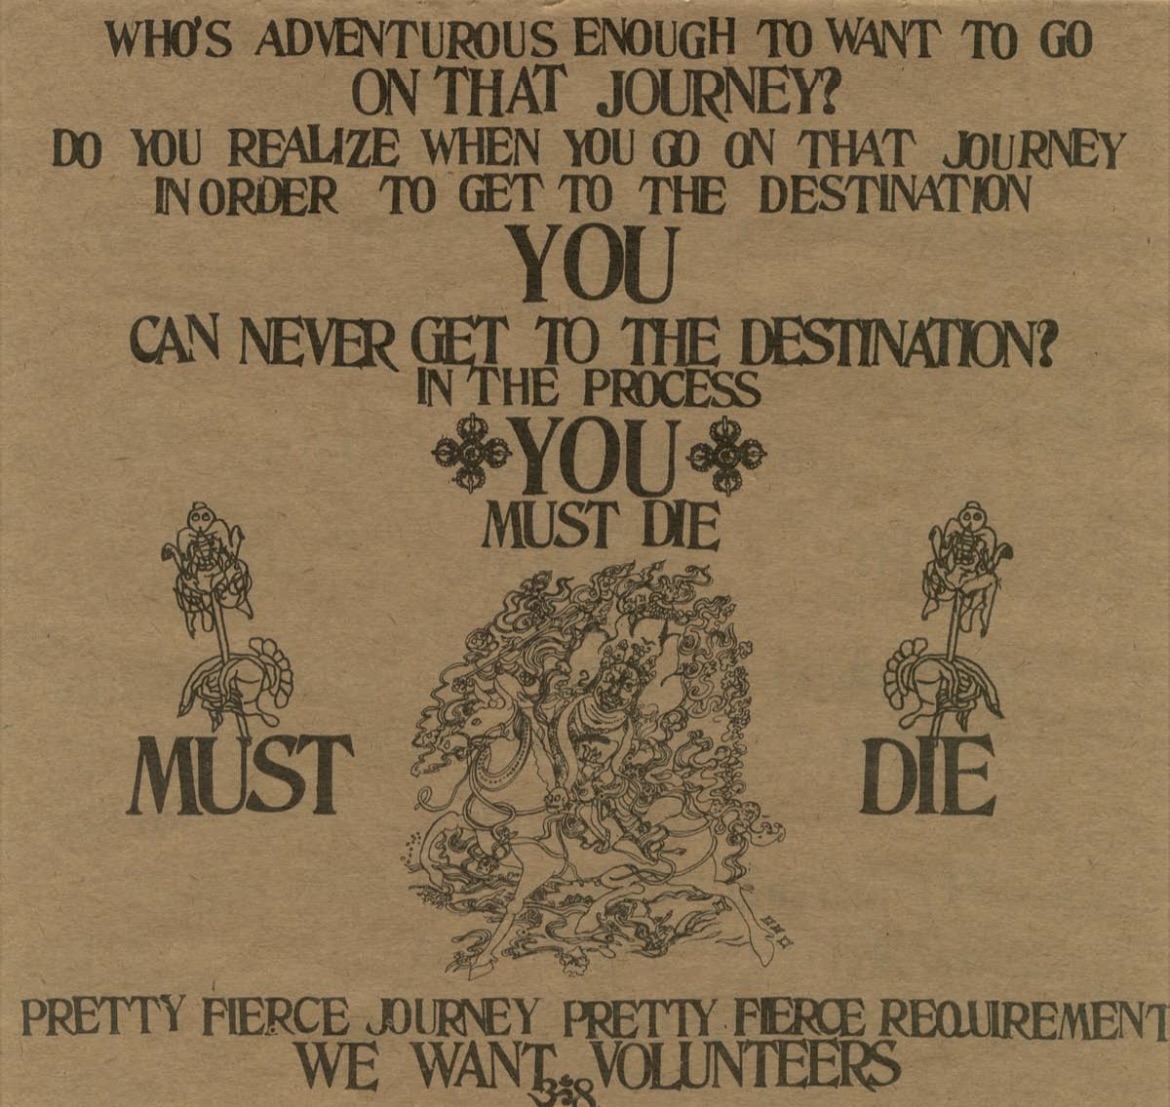 WHO'S ADVENTUROUS ENOUGH TO WANT TO GO
ON THAT JOURNEY?
DO YOU REALIZE WHEN YOU GO ON THAT JOURNEY
IN ORDER TO GET TO THE DESTINATION
YOU
CAN NEVER GET TO THE DESTINATION?
IN THE PROCESS
YOU
MUST DIE
MUST DIE
PRETTY FIERCE JOURNEY PRETTY FIERCE REQUIREMENT
WE WANT VOLUNTEERS